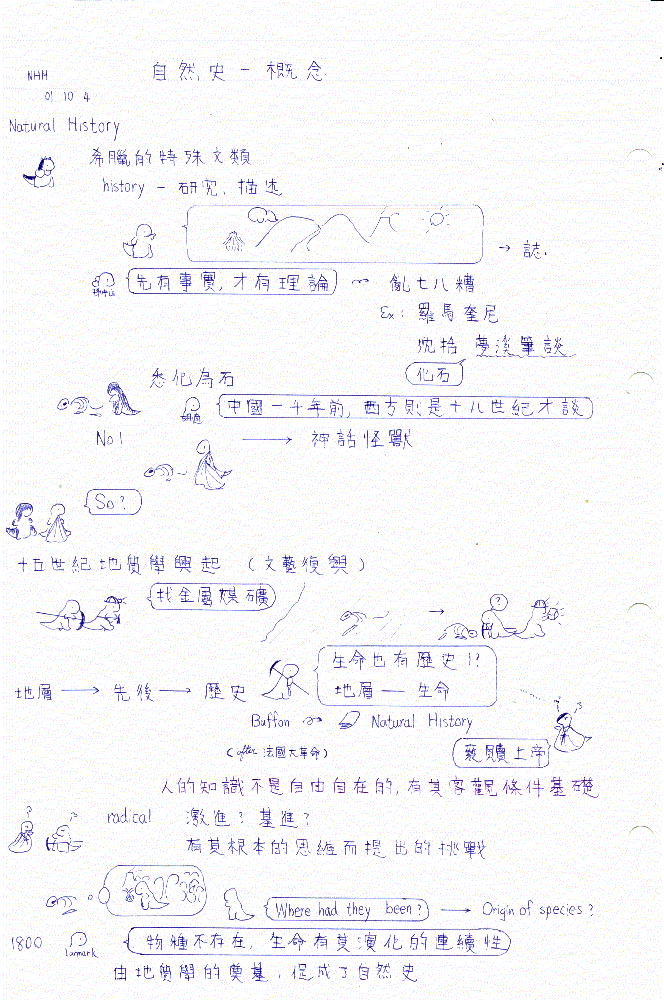 NHM
自然史-概念
01 10 4
Natural History
希臘的特殊文類
history - 研究、描述
→ 誌.
先有事實,才有理論 → 亂七八糟
Ex: 羅馬奎尼
沈括 夢溪筆談
化石
悉化為石
中國一千年前,西方則是十八世紀才談
No1 → 神話怪獸
So?
十五世紀地質學興起 (文藝復興)
找金屬煤礦
生命也有歷史!?
地層 → 先後 → 歷史
地層 — 生命
Buffon Natural History
(after 法國大革命)
褻瀆上帝
人的知識不是自由自在的,有其客觀條件基礎
radical 激進? 基進?
有其根本的思維而提出的挑戰
Where had they been? → Origin of species?
1800 Lamark 物種不存在, 生命有其演化的連續性
由地質學的奠基,促成了自然史